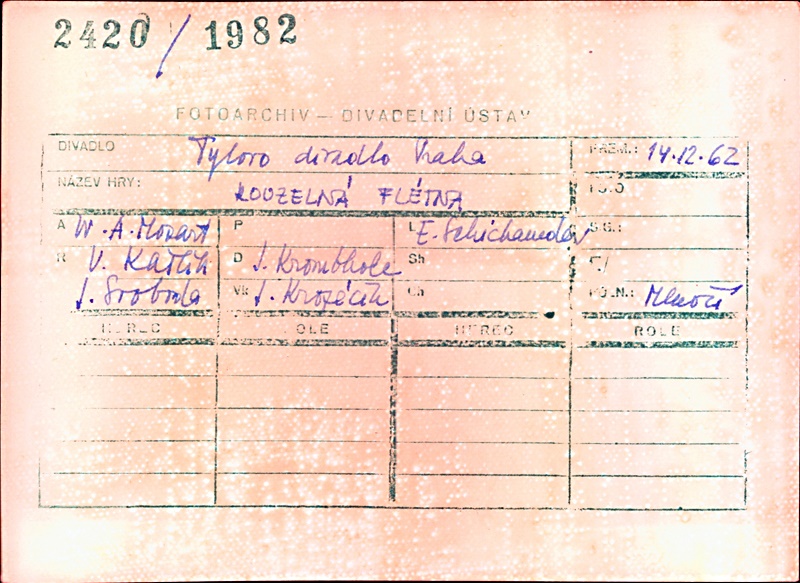 2420/1982
FOTOARCHIV — DIVADELNÍ ÚSTAV
DIVADLO Tylovo divadlo Praha PREM.: 14.12.62
NÁZEV HRY: KOUZELNÁ FLÉTNA
A W.A.Mozart P L E. Schikaneder
R V. Kašlík D J. Krombholc Sh
J. Svoboda Vk J. Kropáček Ch POZN.:
HEREC ROLE HEREC ROLE